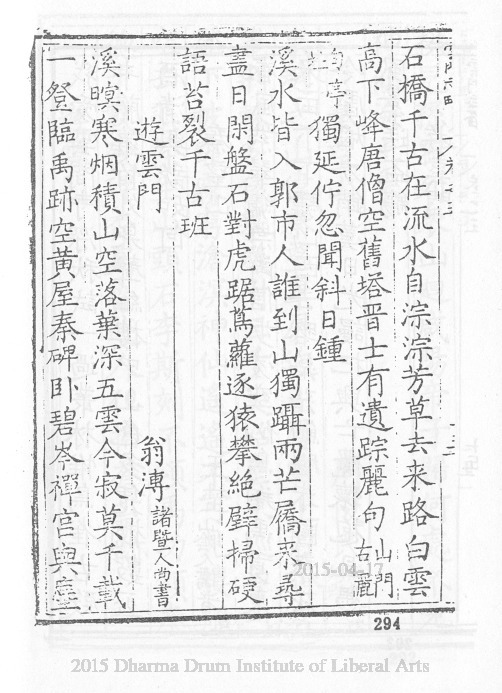 石橋千古在流水自淙淙芳草去来路白雲
高下峰唐僧空舊塔晋士有遺踪麗句山門古麗
亭獨延佇忽聞斜日鍾
溪水皆入郭市人誰到山獨躡兩芒屩來尋
盡日閑盤石對虎踞蔦蘿逐猿攀絕壁掃硬
語苔裂千古班
遊雲門
翁溥諸暨人尚書
溪暝寒烟積山空落葉深五雲今寂莫千載
一登臨禹跡空黄屋秦碑卧碧岑禪宫與
294
2015-04-17
2015 Dharma Drum Institute of Liberal Arts